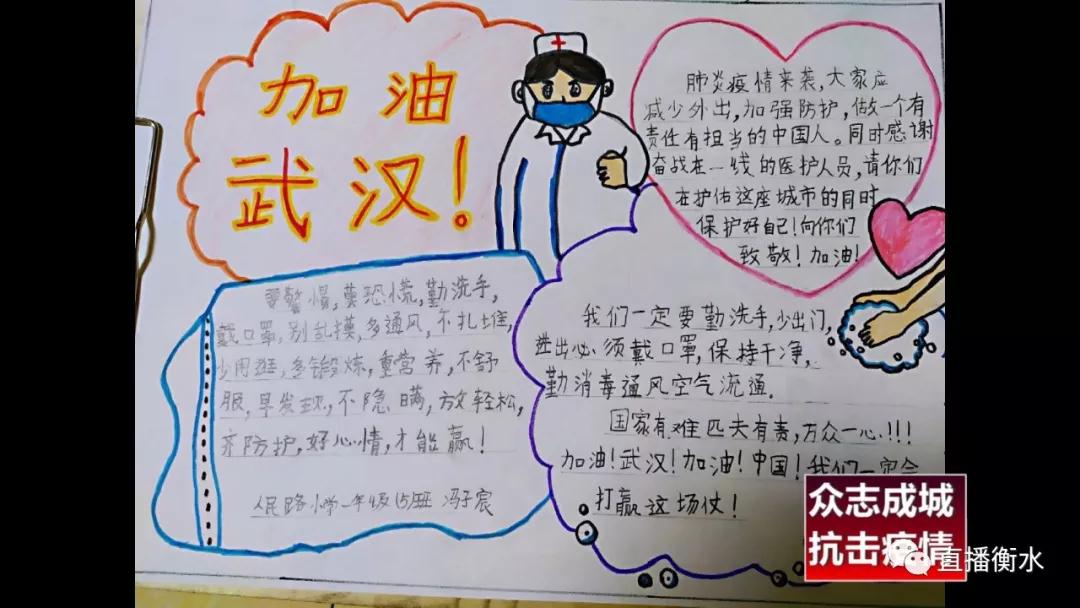 加油
武汉!
肺炎疫情来袭,大家应
减少外出,加强防护,做一个有
责任有担当的中国人。同时感谢
奋战在一线的医护人员,请你们
在护佑这座城市的同时
保护好自己!向你们
致敬!加油!
要警惕,莫恐慌,勤洗手,
戴口罩,别乱摸,多通风,不扎堆,
少闲逛,多锻炼,重营养,不舒
服,早发现,不隐瞒,放轻松,
齐防护,好心情,才能赢!
人民路小学一年级(5)班 冯子宸
我们一定要勤洗手,少出门,
进出必须戴口罩,保持干净,
勤消毒通风空气流通.
国家有难匹夫有责,万众一心!!!
加油!武汉!加油!中国!我们一定会
打赢这场仗!
众志成城
抗击疫情
直播衡水